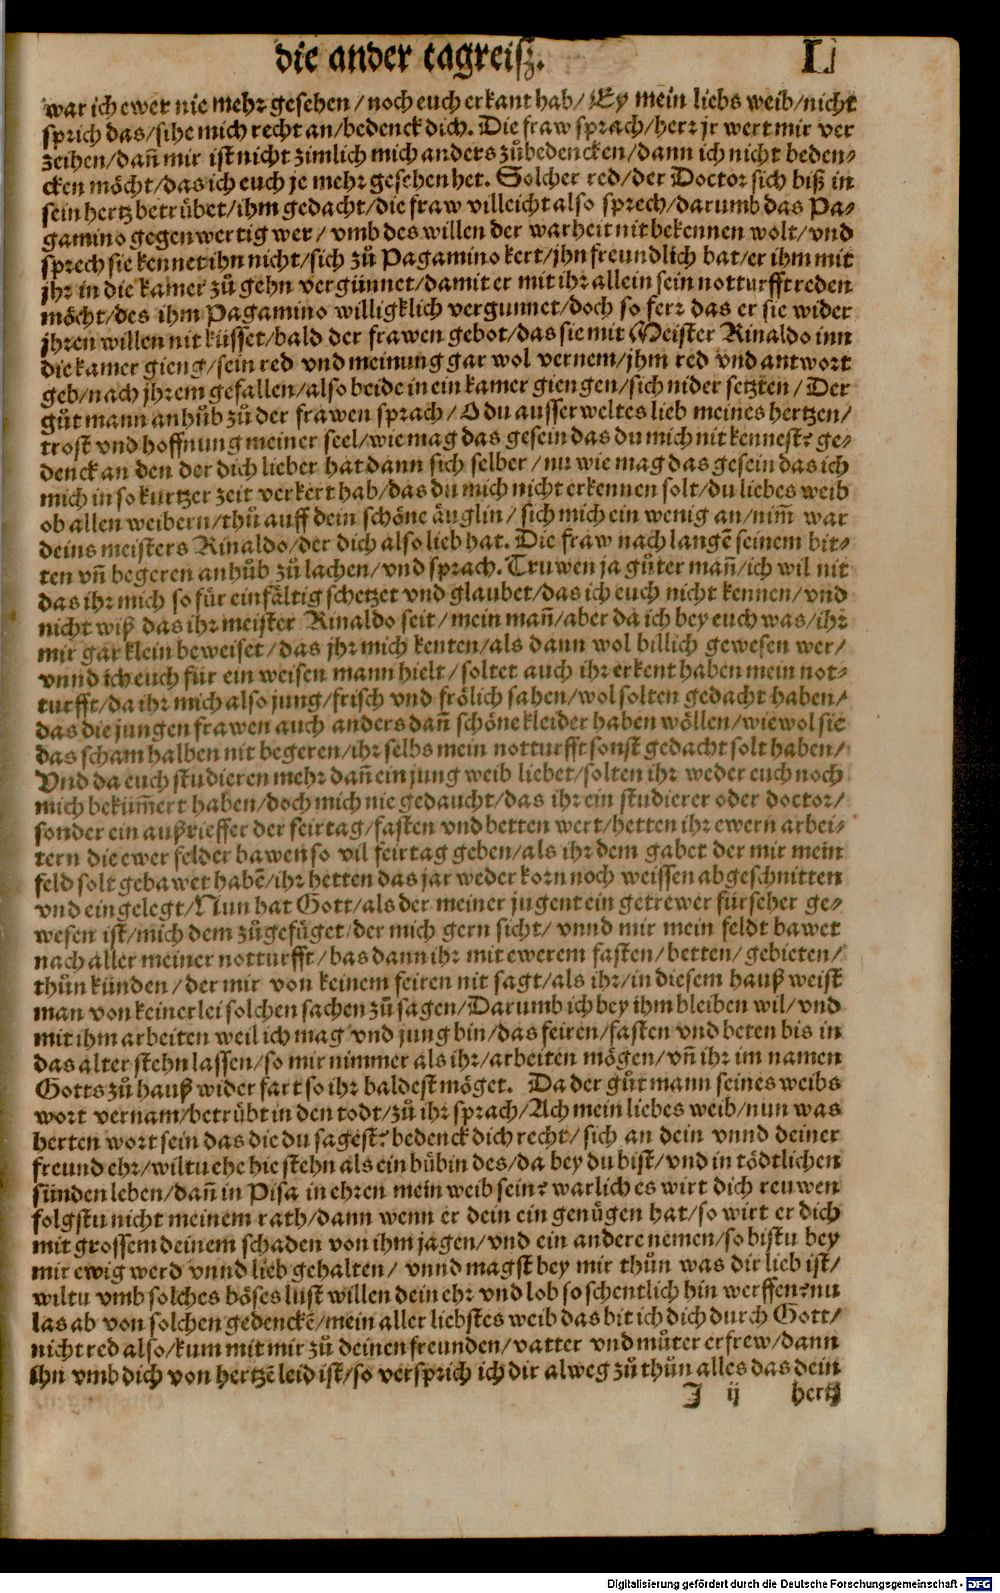 die ander tagreisz. L
war ich ewer nie mehr gesehen / noch euch erkant hab / Ey mein liebs weib / nicht
sprich das / sihe mich recht an / bedenck dich. Die fraw sprach / herr jr wert mir ver
zeihen / dañ mir ist nicht zimlich mich anders zůbedencken / dann ich nicht beden⸗
cken möcht / das ich euch je mehr gesehen het. Solcher red / der Doctor sich biß in
sein hertz betrübet / ihm gedacht / die fraw villeicht also sprech / darumb das Pa⸗
gamino gegenwertig wer / vmb des willen der warheit nit bekennen wolt / vnd
sprech sie kennet ihn nicht / sich zů Pagamino kert / jhn freundlich bat / er ihm mit
jhr in die kamer zů gehn vergünnet / damit er mit ihr allein sein notturfft reden
möcht / des ihm Pagamino willigklich vergunnet / doch so ferr das er sie wider
jhren willen nit küsset / bald der frawen gebot / das sie mit Meister Rinaldo inn
die kamer gieng / sein red vnd meinung gar wol vernem / jhm red vnd antwort
geb / nach jhrem gefallen / also beide in ein kamer giengen / sich nider setzten / Der
gůt mann anhůb zů der frawen sprach / O du ausserweltes lieb meines hertzen /
trost vnd hoffnung meiner seel / wie mag das gesein das du mich nit kennest? ge⸗
denck an den der dich lieber hat dann sich selber / nu wie mag das gesein das ich
mich in so kurtzer zeit verkert hab / das du mich nicht erkennen solt / du liebes weib
ob allen weibern / thů auff dein schöne äuglin / sich mich ein wenig an / nim̃ war
deins meisters Rinaldo / der dich also lieb hat. Die fraw nach langē seinem bit⸗
ten vñ begeren anhůb zů lachen / vnd sprach. Truwen ja gůter mañ / ich wil nit
das ihr mich so für einfältig schetzet vnd glaubet / das ich euch nicht kennen / vnd
nicht wiß das ihr meister Rinaldo seit / mein mañ / aber da ich bey euch was / ihr
mir gar klein beweiset / das jhr mich kenten / als dann wol billich gewesen wer /
vnnd ich euch für ein weisen mann hielt / soltet auch ihr erkent haben mein not⸗
turfft / da ihr mich also jung / frisch vnd frölich sahen / wol solten gedacht haben /
das die jungen frawen auch anders dañ schöne kleider haben wöllen / wiewol sie
das scham halben nit begeren / ihr selbs mein notturfft sonst gedacht solt haben /
Vnd da euch studieren mehr dañ ein jung weib liebet / solten ihr weder euch noch
mich beküm̃ert haben / doch mich nie gedaucht / das ihr ein studierer oder doctor /
sonder ein außrieffer der feirtag / fasten vnd betten wert / hetten ihr ewern arbei⸗
tern die ewer felder bawen so vil feirtag geben / als ihr dem gabet der mir mein
feld solt gebawet habē / ihr hetten das jar weder korn noch weissen abgeschnitten
vnd eingelegt / Nun hat Gott / als der meiner jugent ein getrewer fürseher ge⸗
wesen ist / mich dem zůgefüget / der mich gern sicht / vnnd mir mein feldt bawet
nach aller meiner notturfft / bas dann ihr mit ewerem fasten / betten / gebieten /
thůn künden / der mir von keinem feiren nit sagt / als ihr / in diesem hauß weist
man von keinerlei solchen sachen zů sagen / Darumb ich bey ihm bleiben wil / vnd
mit ihm arbeiten weil ich mag vnd jung bin / das feiren / fasten vnd beten bis in
das alter stehn lassen / so mir nimmer als ihr / arbeiten mögen / vñ ihr im namen
Gotts zů hauß wider fart so ihr baldest möget. Da der gůt mann seines weibs
wort vernam / betrübt in den todt / zů ihr sprach / Ach mein liebes weib / nun was
herten wort sein das die du sagest? bedenck dich recht / sich an dein vnnd deiner
freund ehr / wiltu ehe hie stehn als ein bůbin des / da bey du bist / vnd in tödtlichen
sünden leben / dañ in Pisa in ehren mein weib sein? warlich es wirt dich reuwen
folgstu nicht meinem rath / dann wenn er dein ein genügen hat / so wirt er dich
mit grossem deinem schaden von ihm jagen / vnd ein andere nemen / so bistu bey
mir ewig werd vnnd lieb gehalten / vnnd magst bey mir thůn was dir lieb ist /
wiltu vmb solches böses lust willen dein ehr vnd lob so schentlich hin werffen? nu
las ab von solchen gedenckē / mein aller liebstes weib das bit ich dich durch Gott /
nicht red also / kum mit mir zů deinen freunden / vatter vnd můter erfrew / dann
ihn vmb dich von hertzē leid ist / so versprich ich dir alweg zů thůn alles das dein
J ij hertz
Digitalisierung gefördert durch die Deutsche Forschungsgemeinschaft - DFG